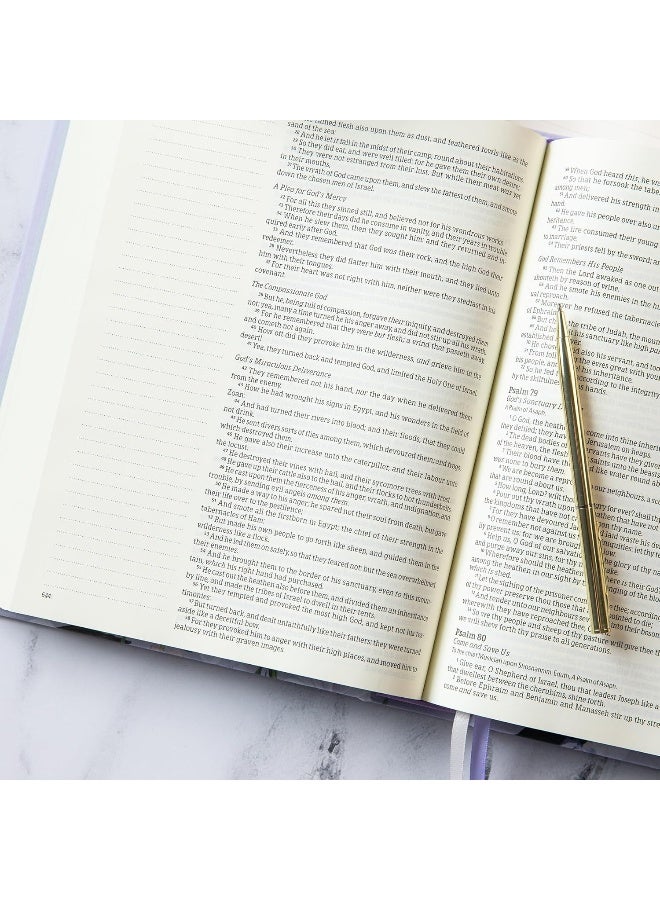 rained flesh also upon them as dust, and feathered fowls like as the
sand of the sea:
28 And he let it fall in the midst of their camp, round about their habitations.
29 So they did eat, and were well filled: for he gave them their own desire;
30 They were not estranged from their lust. But while their meat was yet
in their mouths,
31 The wrath of God came upon them, and slew the fattest of them, and smote
down the chosen men of Israel.
A Plea for God's Mercy
32 For all this they sinned still, and believed not for his wondrous works.
33 Therefore their days did he consume in vanity, and their years in trouble.
34 When he slew them, then they sought him: and they returned and in-
quired early after God.
35 And they remembered that God was their rock, and the high God their
redeemer.
36 Nevertheless they did flatter him with their mouth, and they lied unto
him with their tongues.
37 For their heart was not right with him, neither were they stedfast in his
covenant.
The Compassionate God
38 But he, being full of compassion, forgave their iniquity, and destroyed them
not: yea, many a time turned he his anger away, and did not stir up all his wrath.
39 For he remembered that they were but flesh; a wind that passeth away,
and cometh not again.
40 How oft did they provoke him in the wilderness, and grieve him in the
desert!
41 Yea, they turned back and tempted God, and limited the Holy One of Israel.
God's Miraculous Deliverance
42 They remembered not his hand, nor the day when he delivered them
from the enemy.
43 How he had wrought his signs in Egypt, and his wonders in the field of
Zoan:
44 And had turned their rivers into blood; and their floods, that they could
not drink.
45 He sent divers sorts of flies among them, which devoured them; and frogs,
which destroyed them.
46 He gave also their increase unto the caterpiller, and their labour unto
the locust.
47 He destroyed their vines with hail, and their sycomore trees with frost.
48 He gave up their cattle also to the hail, and their flocks to hot thunderbolts.
49 He cast upon them the fierceness of his anger, wrath, and indignation, and
trouble, by sending evil angels among them.
50 He made a way to his anger; he spared not their soul from death, but gave
their life over to the pestilence;
51 And smote all the firstborn in Egypt; the chief of their strength in the
tabernacles of Ham:
52 But made his own people to go forth like sheep, and guided them in the
wilderness like a flock.
53 And he led them on safely, so that they feared not: but the sea overwhelmed
their enemies.
54 And he brought them to the border of his sanctuary, even to this moun-
tain, which his right hand had purchased.
55 He cast out the heathen also before them, and divided them an inheritance
by line, and made the tribes of Israel to dwell in their tents.
56 Yet they tempted and provoked the most high God, and kept not his tes-
timonies:
57 But turned back, and dealt unfaithfully like their fathers: they were turned
aside like a deceitful bow.
58 For they provoked him to anger with their high places, and moved him to
jealousy with their graven images.
644
59 When God heard this, he was
60 So that he forsook the tabe
among men;
61 And delivered his strength in
hand.
62 He gave his people over also un
heritance.
63 The fire consumed their young
to marriage.
64 Their priests fell by the sword; an
God Remembers His People
65 Then the Lord awaked as one out
shouteth by reason of wine.
66 And he smote his enemies in the hin
ual reproach.
67 Moreover he refused the tabernacle
of Ephraim
the tribe of Judah, the mount
69 And he his sanctuary like high pal
established
70 He chose also his servant, and too
71 From following the ewes great with young
his people, and his inheritance.
72 So he fed according to the integrity
by the skilfulness of his hands.
Psalm 79
God's Sanctuary
A Psalm of Asaph.
1 O God, the heathen come into thine inherit
they defiled; they have
2 The dead bodies of servants have they given
of the heaven, the flesh of saints unto the beasts
3 Their blood have they like water round abo
was none to bury them.
4 We are become a reproach our neighbours, a sc
that are round about us.
5 How long, LORD? wilt thou for ever? shall thy
6 Pour out thy wrath upon the heathen that have not
the kingdoms that have not
7 For they have devoured Jacob, and laid waste his dw
8 O remember not against us iniquities: let thy te
by prevent us: for we are brought
9 Help us, O God of our salvation, the glory of thy na
and purge away our sins, for thy
10 Wherefore should the heathen Where is their God?
among the heathen in our sight by
which is shed.
11 Let the sighing of the prisoner come thee; according
of thy power preserve thou those that are appointed to die;
12 And render unto our neighbours sevenfold into their
wherewith they have reproached thee, O Lord.
13 So we thy people and sheep of thy pasture will give thee th
we will shew forth thy praise to all generations.
Psalm 80
Come and Save Us
To the chief Musician upon Shoshannim-Eduth, A Psalm of Asaph.
1 Give ear, O Shepherd of Israel, thou that leadest Joseph like a
that dwellest between the cherubims, shine forth.
2 Before Ephraim and Benjamin and Manasseh stir up thy stre
come and save us.